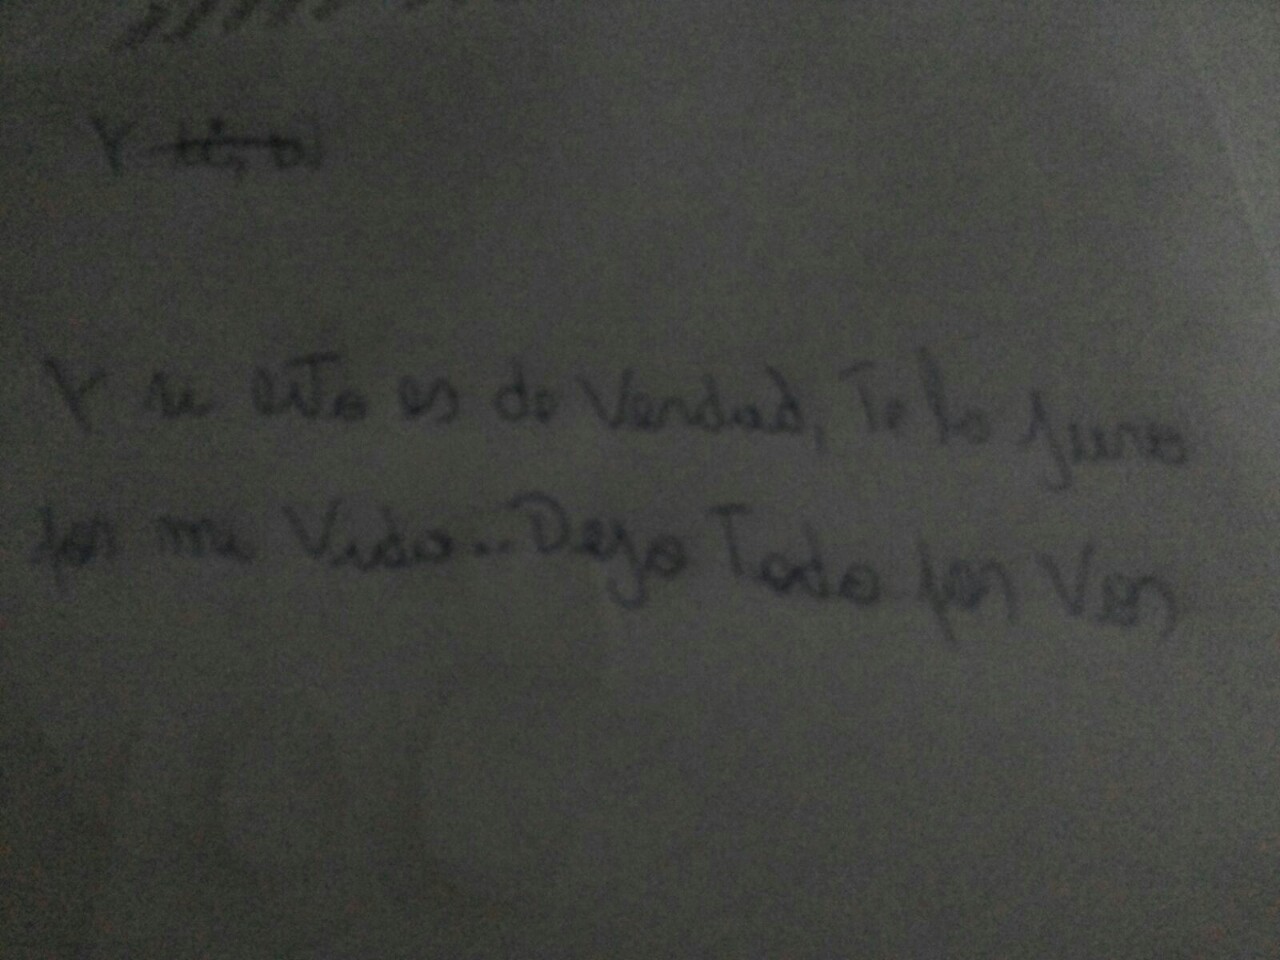 Y
Y si esto es de Verdad, Te lo juro
por mi Vida.. Dejo Todo por Ver